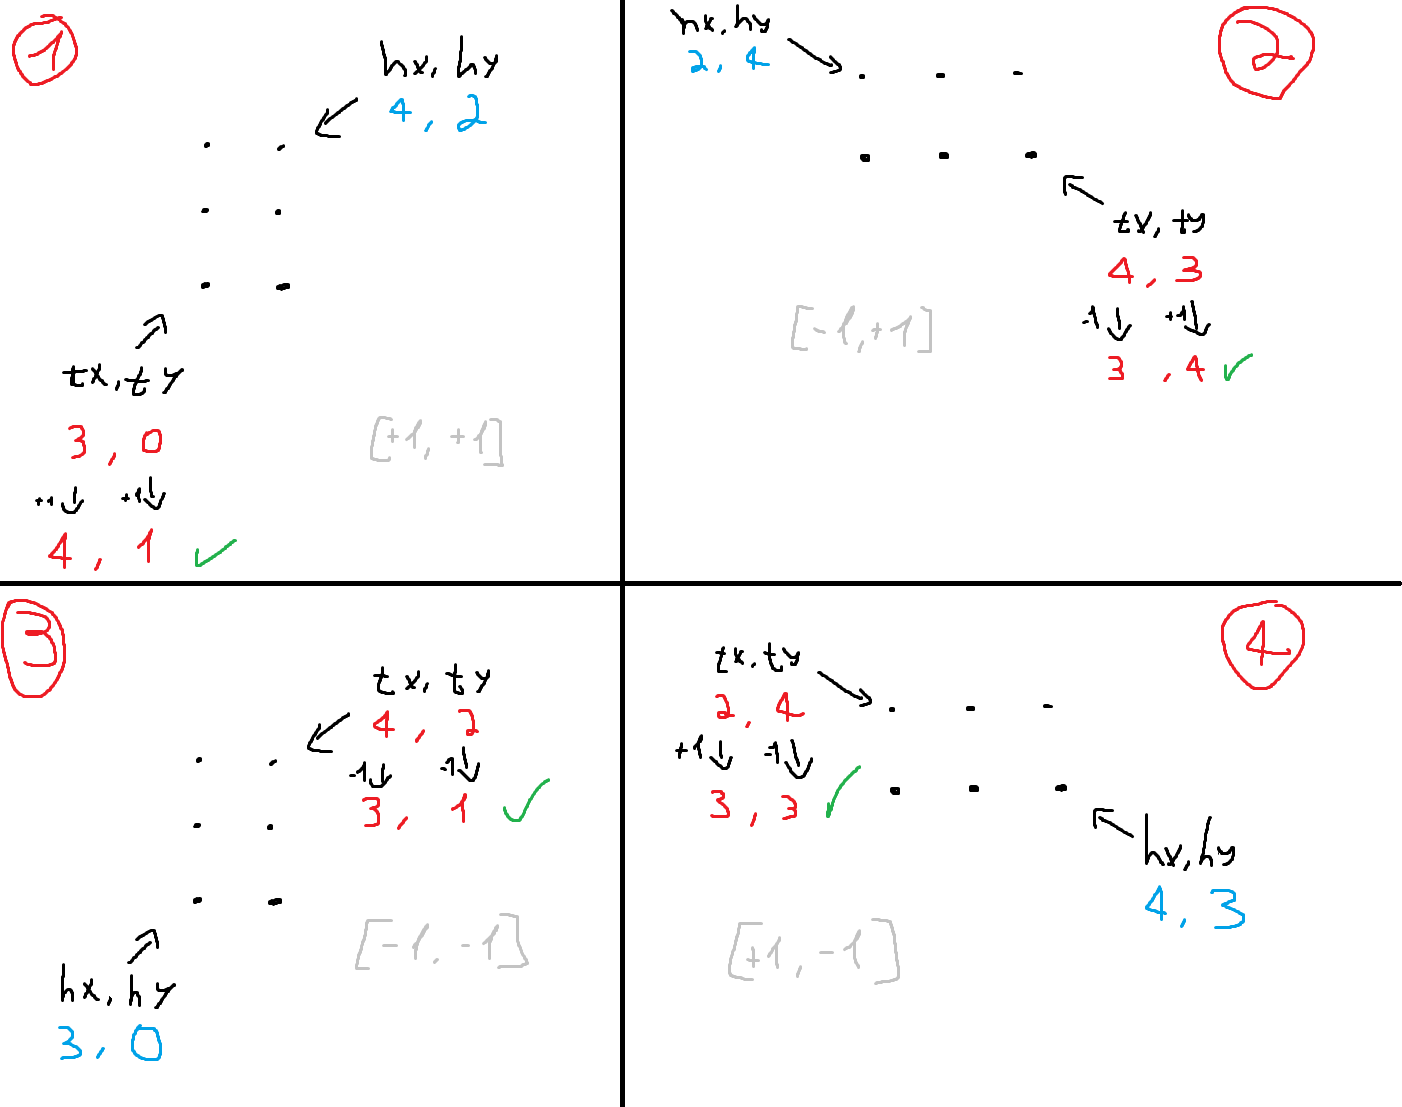 1
hx, hy
4, 2
tx, ty
3, 0
+1 +1
4, 1
[+1, +1]
2
hx, hy
2, 4
tx, ty
4, 3
-1 +1
3, 4
[-1, +1]
3
tx, ty
4, 2
-1 -1
3, 1
hx, hy
3, 0
[-1, -1]
4
tx, ty
2, 4
+1 -1
3, 3
hx, hy
4, 3
[+1, -1]